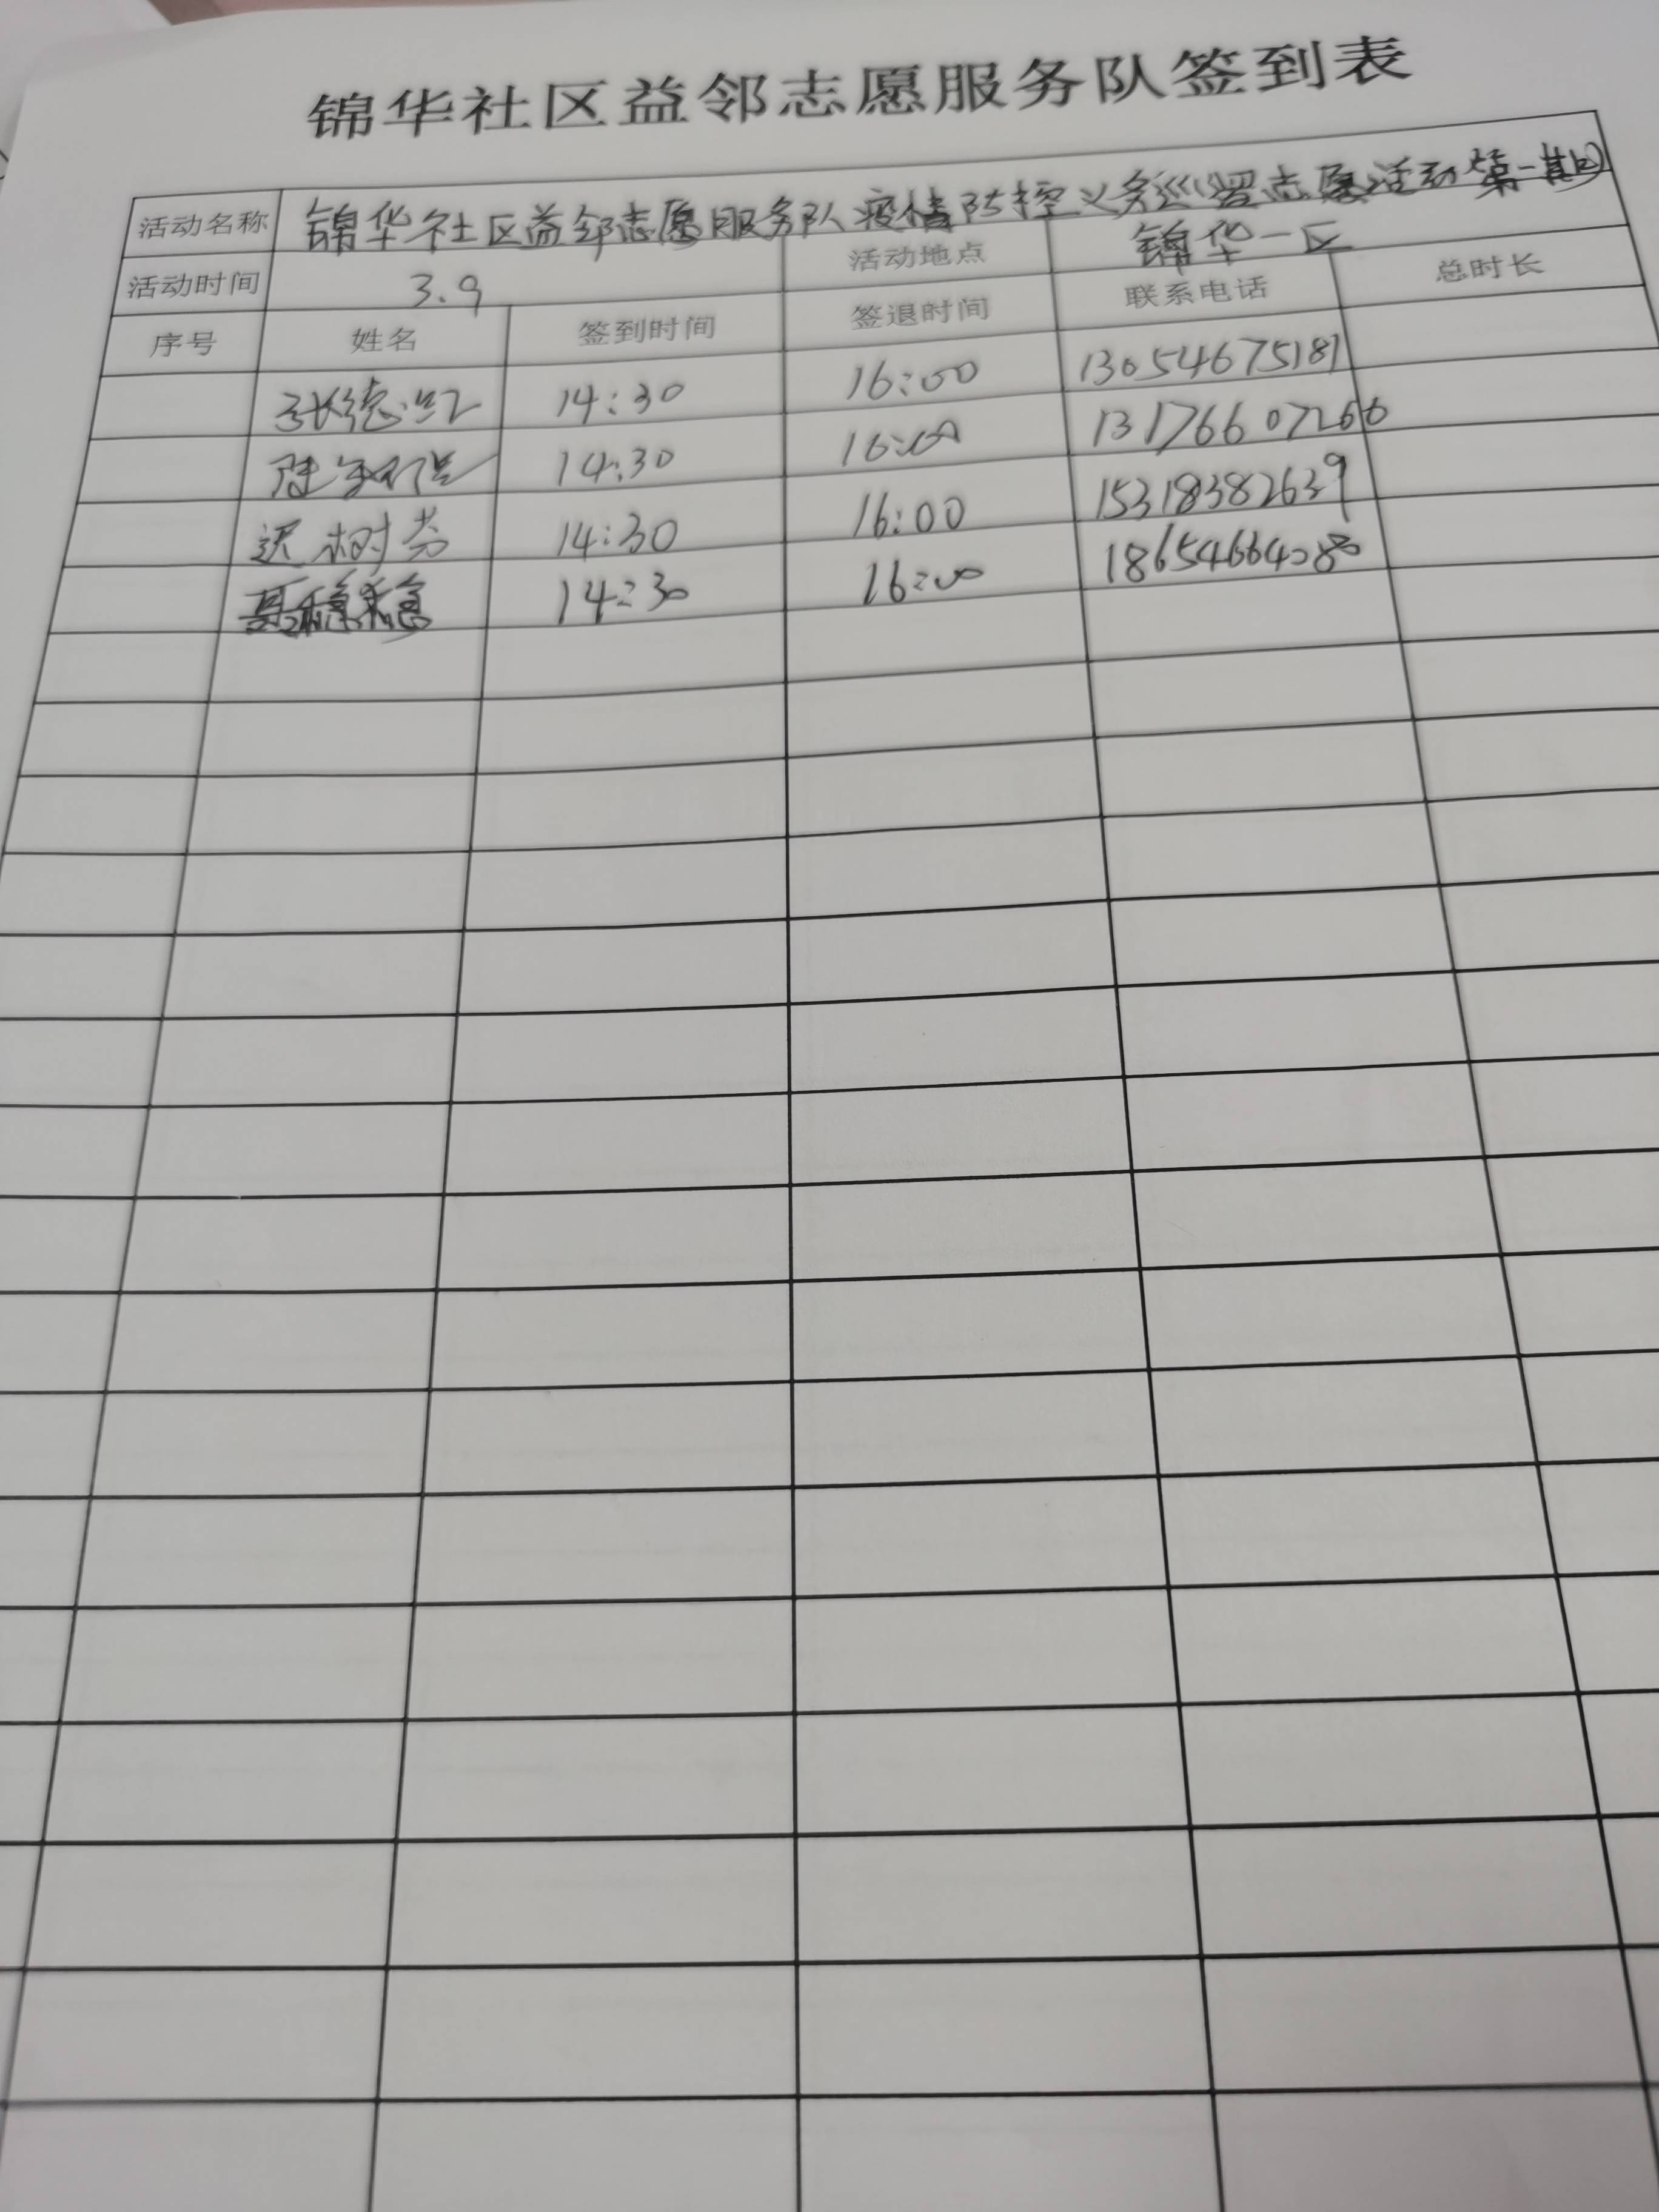 锦华社区益邻志愿服务队签到表
活动名称 锦华社区益邻志愿服务队疫情防控义务巡逻志愿活动第一期
活动时间 3.9 活动地点 锦华一区
序号 姓名 签到时间 签退时间 联系电话 总时长
14:30 16:00 13054675181
14:30 16:00 13176607266
迟树芬 14:30 16:00 15318382639
14:30 16:00